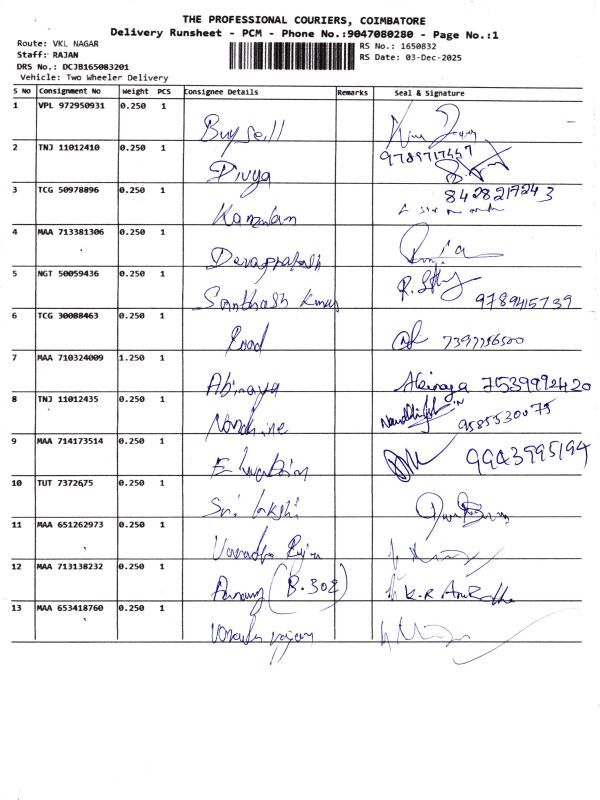 THE PROFESSIONAL COURIERS, COIMBATORE
Delivery Runsheet - PCM - Phone No.:9047080280 - Page No.:1
Route: VKL NAGAR
Staff: RAJAN
DRS No.: DCJB165083201
Vehicle: Two Wheeler Delivery
RS No.: 1650832
RS Date: 03-Dec-2025
S No Consignment No Weight PCS Consignee Details Remarks Seal & Signature
1 VPL 972950931 0.250 1 Buysell
2 TNJ 11012410 0.250 1 Divya 9789717457
3 TCG 50978896 0.250 1 8428217243
4 MAA 713381306 0.250 1
5 NGT 50059436 0.250 1 Santhosh Kumar 9789415739
6 TCG 30088463 0.250 1
7 MAA 710324009 1.250 1 Abinaya Abinaya 7539992420
8 TNJ 11012435 0.250 1 9585530075
9 MAA 714173514 0.250 1 9943995194
10 TUT 7372675 0.250 1
11 MAA 651262973 0.250 1
12 MAA 713138232 0.250 1 (B.302) K.R
13 MAA 653418760 0.250 1